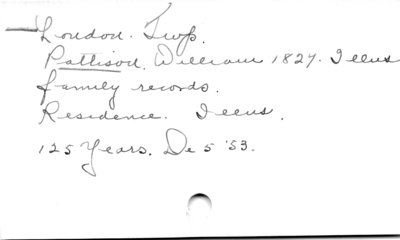 London. Twp.
Pattison, William 1827. Illus
family records.
Residence. Illus.
125 Years. De 5 '53.